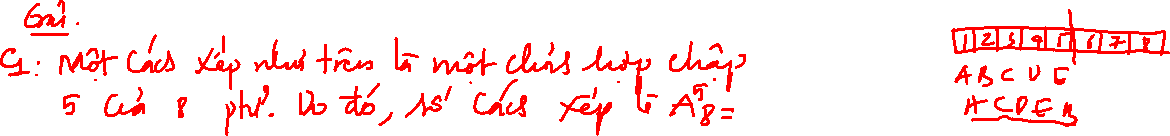 Giải.
C1: Một cách xếp như trên là một chỉnh hợp chập
5 của 8 ptử. Do đó, số cách xếp là A⁵₈=
1 2 3 4 5 6 7 8
A B C D E
A C D E B